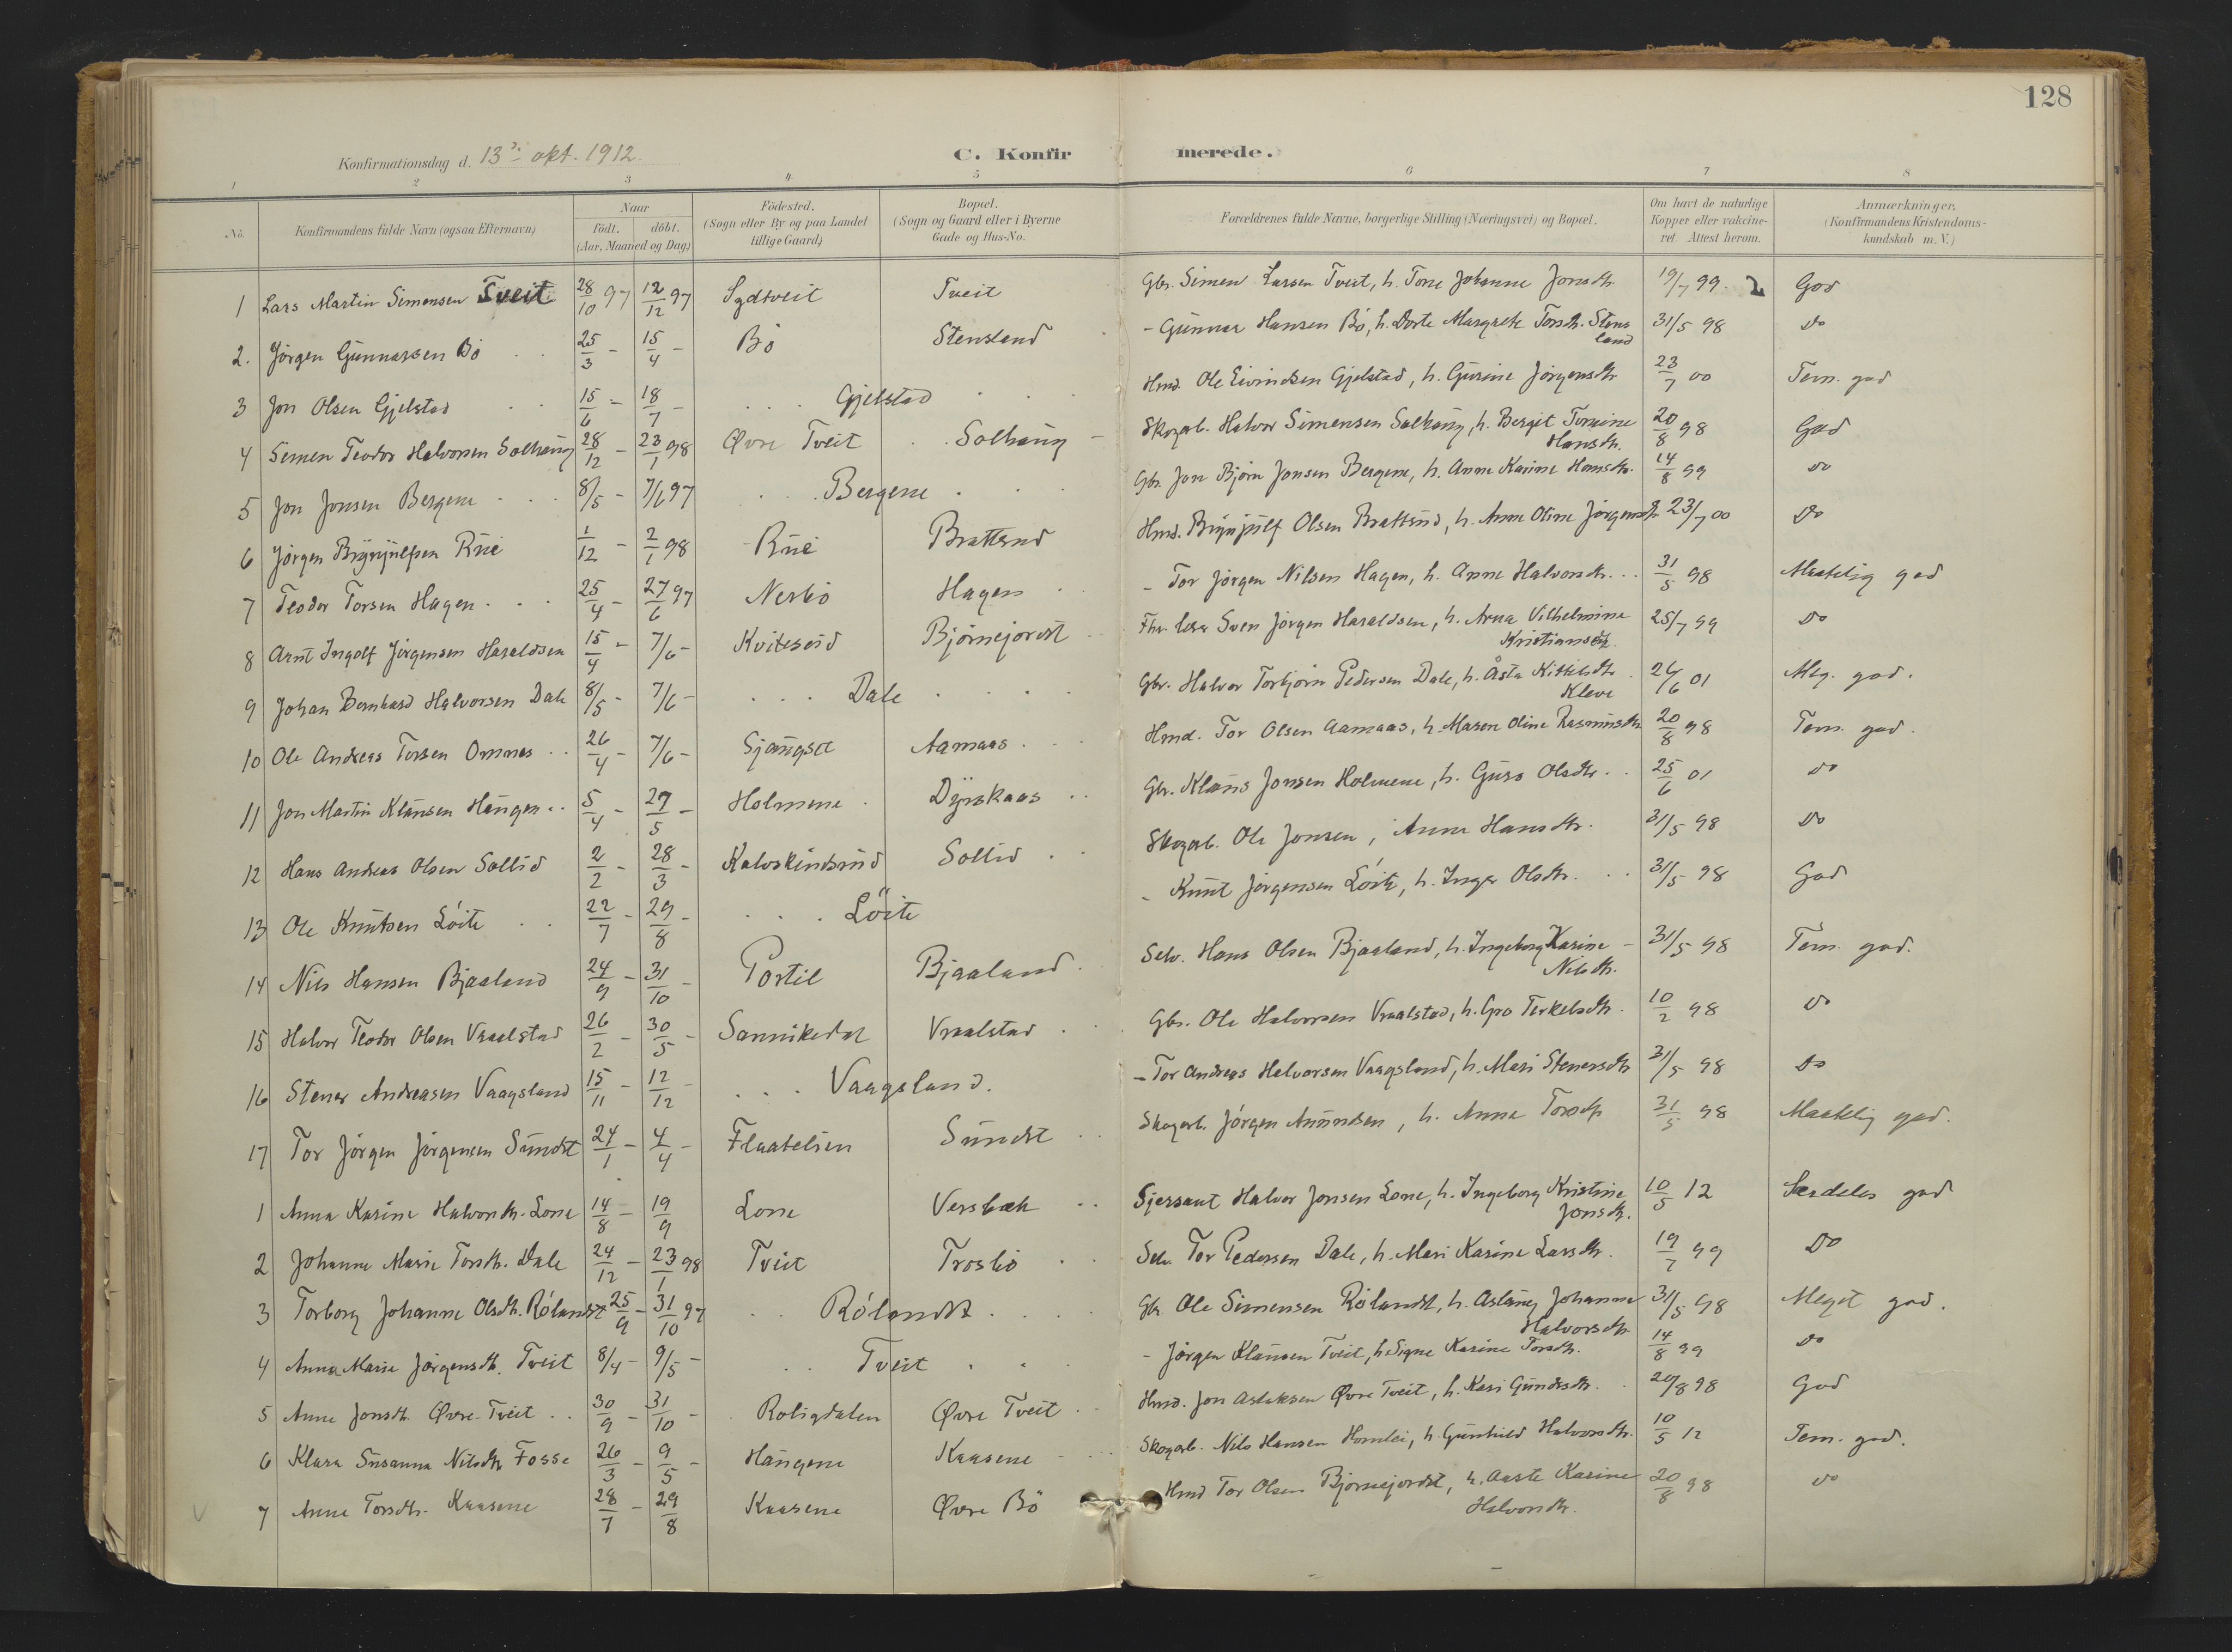 128
Konfirmationsdag d. 13de okt. 1912.
C. Konfirmerede.
1 2 3 4 5 6 7 8
No.
Konfirmandens fulde Navn (ogsaa Efternavn)
Naar
födt. döbt.
(Aar, Maaned og Dag)
Födested.
(Sogn eller By og paa Landet
tillige Gaard)
Bopæl.
(Sogn og Gaard eller i Byerne
Gade og Hus-No.
Forældrenes fulde Navne, borgerlige Stilling (Næringsvei) og Bopæl.
Om havt de naturlige
Kopper eller vakcine-
ret. Attest herom.
Anmærkninger,
(Konfirmandens Kristendoms-
kundskab m. V.)
1 Lars Martin Simonsen Tveit 28/10 97 12/12 97 Sydtveit Tveit Gbr. Simen Larsen Tveit, h. Tone Johanne Jonsdtr. 19/7 99. God
2. Jörgen Gunnarsen Bö 25/3 - 15/4 - Bö Stensland - Gunnar Hansen Bö, h. Dorte Margrete Torsdtr. Stens
land 31/5 98 Do
3 Jon Olsen Gjelstad 15/6 - 18/7 - Gjelstad Hmd. Ole Eivindsen Gjelstad, h. Gurine Jörgensdtr 23/7 00 Tem. god
4 Simen Teodor Halvorsen Solhaug 28/12 - 23/1 98 Øvre Tveit Solhaug Skogarb. Halvor Simensen Solhaug, h. Bergit Tomine
Hansdtr. 20/8 98 God
5 Jon Jonsen Bergene 8/5 - 7/6 97 Bergene Gbr. Jon Björn Jonsen Bergene, h. Anne Karine Hansdtr. 14/8 99 Do
6 Jörgen Brynjulfsen Rue 1/12 - 2/1 98 Rue Brattsud Hmd. Brynjulf Olsen Brattsud, h. Anne Oline Jörgensdtr 23/7 00 Do
7 Teodor Torsen Hagen 25/4 - 27/6 97 Nesbö Hagen - Tor Jörgen Nilsen Hagen, h. Anne Halvorsdtr. 31/5 98 Maatelig god
8 Arnt Ingolf Jörgensen Haraldsen 15/4 - 7/6 - Kviteseid Björnejordet Sven Jörgen Haraldsen, h. Anna Vilhelmine
Kristiansdtr. 25/7 99 Do
9 Johan Bernhard Halvorsen Dale 8/5 - 7/6 - Dale Gbr. Halvor Torbjörn Pedersen Dale, h. Åsta Kittilsdtr.
Kleve 26/6 01 Meg. god.
10 Ole Andreas Torsen Omnes 26/4 - 7/6 - Aamaas Hmd. Tor Olsen Aamaas, h. Maren Oline Rasmusdtr 20/8 98 Tem. god.
11 Jon Martin Klausen Haugen 5/4 - 27/5 - Holmene Dyrskaas Gbr. Klaus Jonsen Holmene, h. Guro Olsdtr. 25/6 01 Do
12 Hans Andreas Olsen Sollid 2/2 - 28/3 - Kalvskindsrud Sollid Skogarb. Ole Jonsen, Anne Hansdtr. 31/5 98 Do
13 Ole Knutsen Löite 22/7 - 29/8 - Löite - Knut Jörgensen Löite, h. Inger Olsdtr. 31/5 98 God
14 Nils Hansen Bjaaland 24/9 - 31/10 - Portil Bjaaland Selv. Hans Olsen Bjaaland, h. Ingeborg Karine
Nilsdtr. 31/5 98 Tem. god.
15 Halvor Teodor Olsen Vraalstad 26/2 - 30/5 - Sannikedal Vraalstad Gbr. Ole Halvorsen Vraalstad, h. Gro Terkelsdtr. 10/2 98 Do
16 Stener Andreasen Vaagsland 15/11 - 12/12 - Vaagsland. - Tor Andreas Halvorsen Vaagsland, h. Mari Stenersdtr 31/5 98 Do
17 Tor Jörgen Jörgensen Sundet 24/1 - 4/4 - Flaatelien Sundet Skogarb. Jörgen Amundsen, h. Anne Torsdtr 31/5 98 Maatelig god.
1 Anna Karine Halvorsdtr. Lone 14/8 - 19/9 Lone Versbæk Sjersant Halvor Jonsen Lone, h. Ingeborg Kristine
Jonsdtr. 10/5 12 Særdeles god
2 Johanne Marie Torsdtr. Dale 24/12 - 23/1 98 Tveit Trosbö Selv. Tor Pedersen Dale, h. Mari Karine Larsdtr. 19/7 99 Do
3 Torborg Johanne Olsdtr. Rölandst 25/9 - 31/10 97 Rölandst Gbr Ole Simensen Rölandst, h. Aslaug Johanne
Halvorsdtr. 31/5 98 Meget god.
4 Anna Marie Jörgensdtr. Tveit 8/4 - 9/5 - Tveit - Jörgen Klausen Tveit, h. Signe Karine Torsdtr. 14/8 99 Do
5 Anne Jonsdtr. Øvre Tveit 30/9 - 31/10 - Roligdalen Øvre Tveit Hmd. Jon Aslaksen Øvre Tveit, h. Kari Gundersdtr. 20/8 98 God
6 Klara Susanna Nilsdtr. Fosse 26/3 - 9/5 - Haugene Kaasene Skogarb. Nils Hansen Homlei, h. Gunhild Halvorsdtr. 10/5 12 Tem. god.
7 Anne Torsdtr. Kaasene 28/7 - 29/8 Kaasene Øvre Bö Hmd Tor Olsen Björnejordet, h. Aaste Karine
Halvorsdtr. 20/8 98 Do